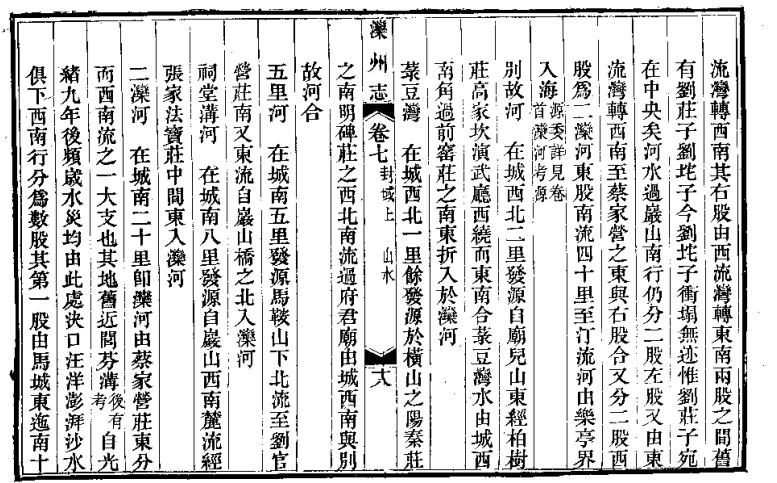 流灣轉西南其右股由西流灣轉東南兩股之間舊
有劉莊子劉坨子今劉坨子衝塌無迹惟劉莊子宛
在中央矣河水過巖山南行仍分二股左股又由東
流灣轉西南至蔡家營之東與右股合又分二股西
股爲二灤河東股南流四十里至汀流河由樂亭界
入海源委詳見卷首灤河考源
別故河　在城西北二里發源自廟兒山東經柏樹
莊高家坎演武廳西繞而東南合菉豆灣水由城西
南角過前窰莊之南東折入於灤河
菉豆灣　在城西北一里餘發源於橫山之陽秦莊
灤州志　卷七　封域上　山水　十八
之南明碑莊之西北南流過府君廟由城西南與別
故河合
五里河　在城南五里發源馬鞍山下北流至劉官
營莊南又東流自巖山橋之北入灤河
祠堂溝河　在城南八里發源自巖山西南麓流經
張家法寶莊中間東入灤河
二灤河　在城南二十里卽灤河由蔡家營莊東分
而西南流之一大支也其地舊近閻芬溝後有考自光
緒九年後頻歲水災均由此處決口汪洋澎湃沙水
俱下西南行分爲數股其第一股由馬城東迤南十